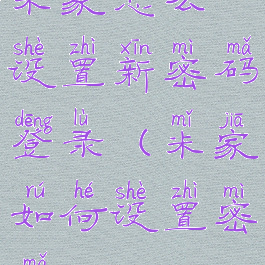 shè zhì xīn mì mǎ
设置新密码
dēng lù mǐ jiā
登录（米家
rú hé shè zhì mì
如何设置密
mǎ